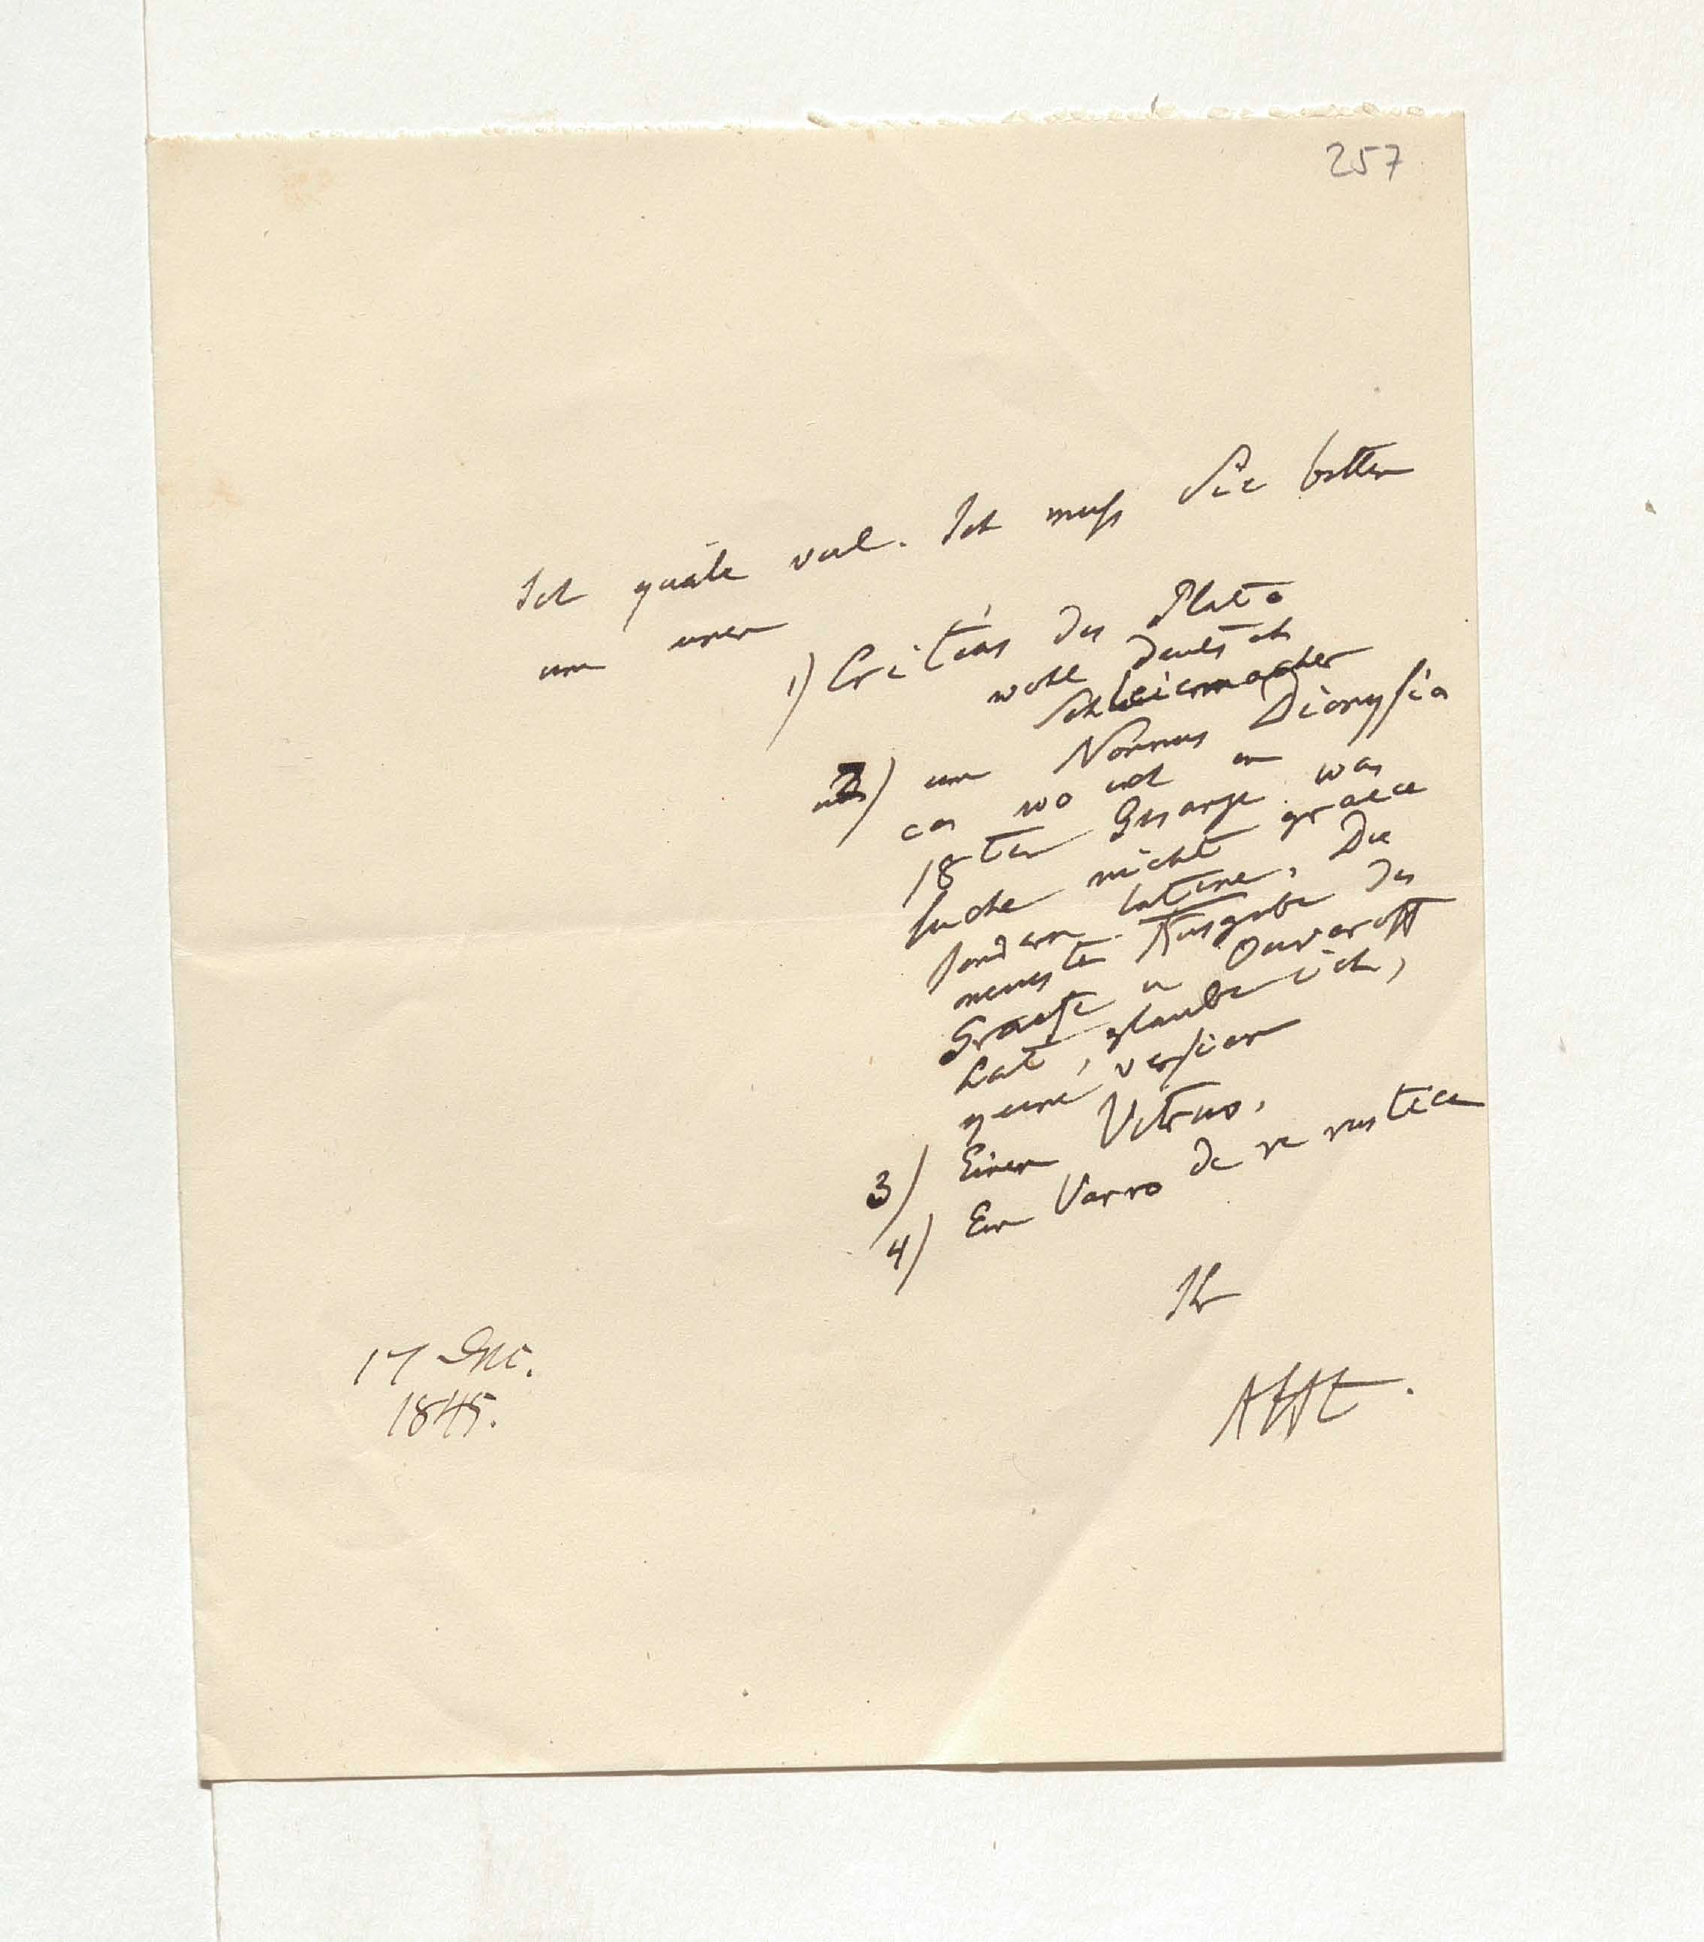 257
Ich quäle viel. Ich muß Sie bitten
um einen
1) Critias des Plato
wohl deutsch
Schleiermacher
2) um Nonnus Dionysia
ca wo ich im
18ten Gesange was
suche nicht graece
sondern latine. Die
neueste Ausgabe des
Graefe u Ouvaroff
hat, glaube ich,
keine version
3) Einen Vitruv.
4) Ein Varro de re rustica
Ihr
AHt.
17 Dec.
1845.